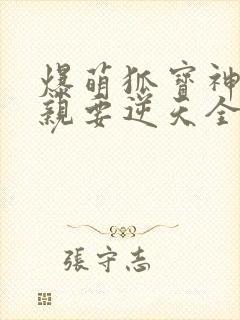 爆萌狐寶神
親要逆天全
張守志